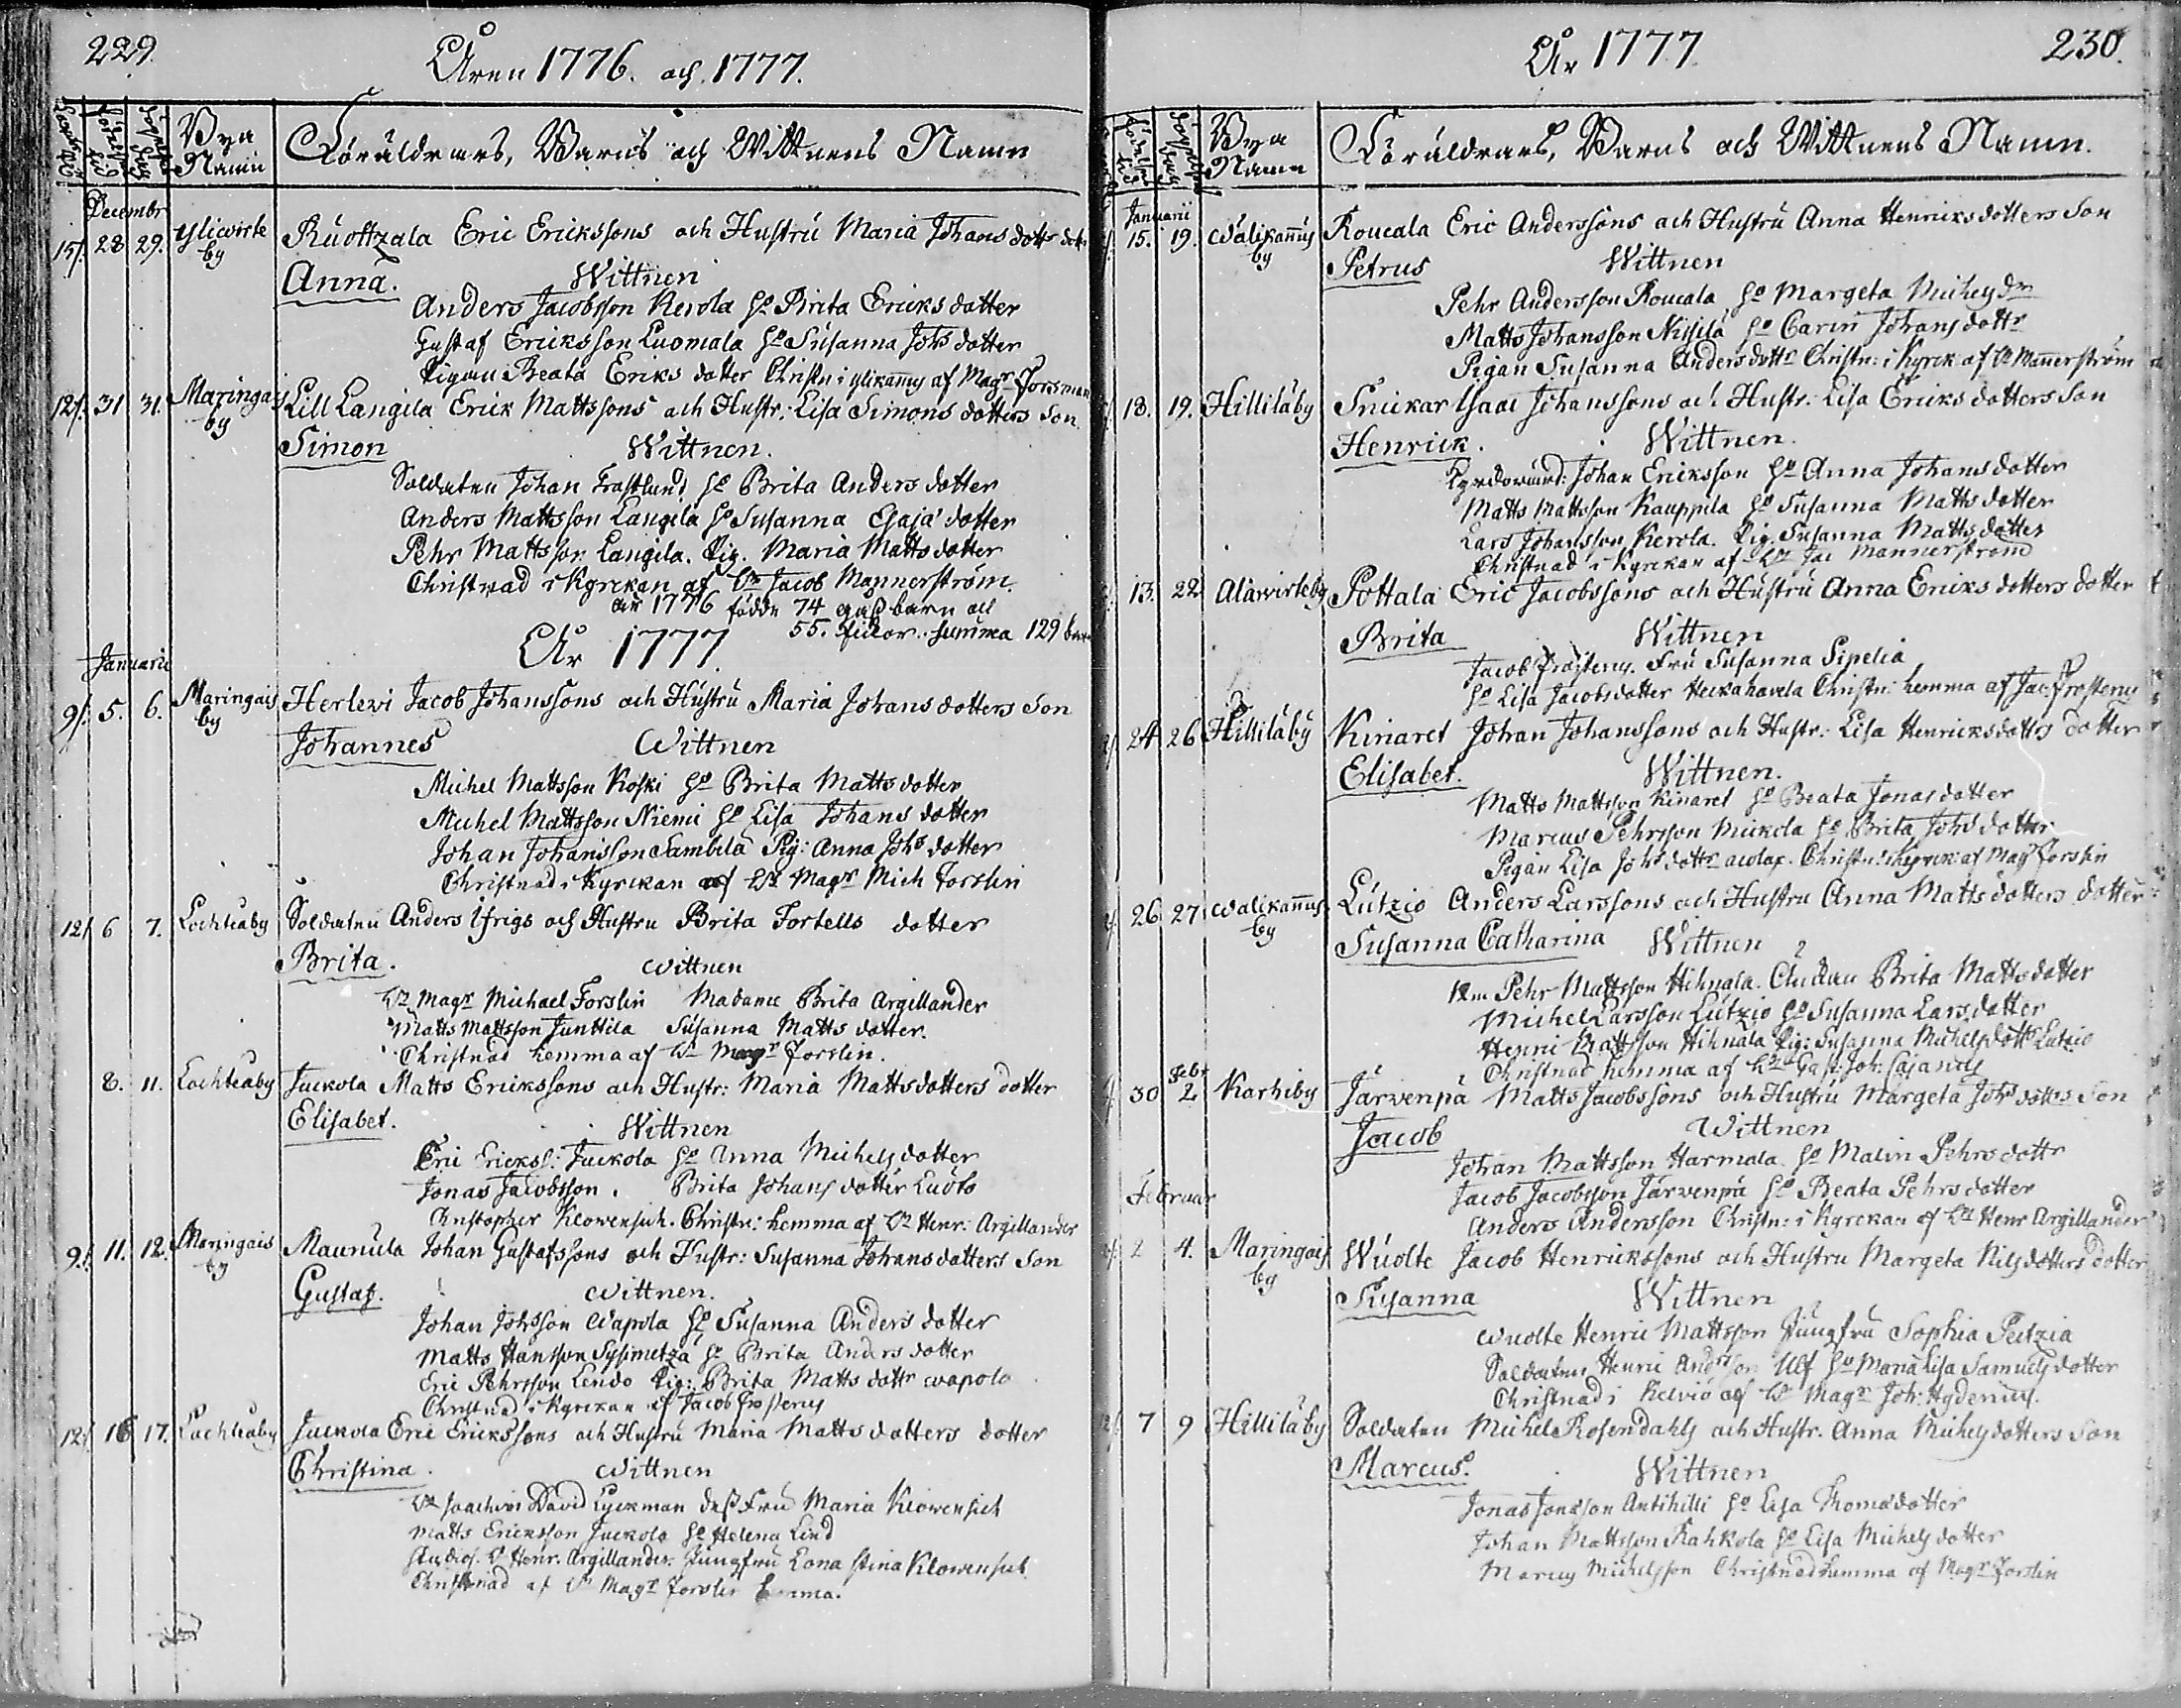 229.
Åren 1776. och 1777.
Födelse tid
Döpelse dag
Bya Namn
Föräldrars, Barns och Wittnens Namn
Decembr
15/. 28 29. Yliwirte by
Ruottzala Eric Erickssons och Hustru Maria Johans dotters dott
Anna. Wittnen
Anders Jacobsson Kerola Ho Brita Ericks dotter
Gustaf Ericksson Luomala Ho Susanna Johs dotter
Pigan Beata Eriks dotter Christn: i ylikannus af Magr Forsman
12/. 31 31. Maringais by
Lill Langila Erick Mattssons och Hustr: Lisa Simons dotters Son
Simon Wittnen.
Soldaten Johan Frostlund Ho Brita Anders dotter
Anders Mattsson Langila Ho Susanna Esaja dotter
Pehr Mattsson Langila. Pig. Maria Matts dotter
Christnad i Kyrckan af Hr Jacob Mannerström.
år 1776 födde 74 gåssbarn och
55. flickor. summa 129 barn
År 1777.
Januarii
9/. 5. 6. Maringais by
Herlevi Jacob Johanssons och Hustru Maria Johans dotters Son
Johannes Wittnen
Michel Mattsson Koski Ho Brita Matts dotter
Michel Mattsson Niemi Ho Lisa Johans dotter
Johan Johansson Sambila Pig: Anna Johs dotter
Christnad i Kyrckan af Hr Magr Mich Forslin
12/. 6 7. Lochteaby
Soldaten Anders Ifrigs och Hustru Brita Fortells dotter
Brita. Wittnen
Hr Magr Michael Forslin Madame Brita Argillander
Matts Mattsson Junttila Susanna Matts dotter.
Christnad hemma af Hr Magr Forslin.
8. 11. Lochteaby
Juckola Matts Erickssons och Hustr: Maria Mattsdotters dotter
Elisabet. Wittnen
Eric Ericks: Juckola Ho Anna Michels dotter
Jonas Jacobsson. Brita Johans dotter Luoto
Christopher Klowensich. Christn: hemma af Hr Henr: Argillander
9/. 11. 12. Maringais by
Maunula Johan Gustafssons och Hustr: Susanna Johansdotters Son
Gustaf. Wittnen.
Johan Johsson Wapola Ho Susanna Anders dotter
Matts Hansson Sysimetzä Ho Brita Anders dotter
Eric Pehrsson Lendo Pig: Brita Matts dottr wapola
Christnad i Kyrckan af Jacob Frosterus
12/. 16 17. Lochteaby
Juckola Eric Erickssons och Hustru Maria Matts dotters dotter
Christina. Wittnen
Hr Joachim David Lyckman dess Fru Maria Klowensich
Matts Ericksson Juckola Ho Helena Lind
Studios. Hr Henr. Argillander. Jungfru Lona Stina Klowensich
Christnad af Hr Magr Forslin hemma.
År 1777.
230.
Födelse tid
Döpelse dag
Bya Namn
Föräldrars, Barns och Wittnens Namn.
Januarii
15. 19. Wälikannus by
Roucala Eric Anderssons och Hustru Anna Henricks dotters Son
Petrus Wittnen
Pehr Andersson Roucala Ho Margeta Michels dr
Matts Johansson Nissilä Ho Carin Johans dottr
Pigan Susanna Anders dottr Christn: i Kyrck af Hr Mannerström
18. 19. Hilliläby
Snickar Isaac Johanssons och Hustr: Lisa Ericks dotters Son
Henrick. Wittnen.
Johan Ericksson Ho Anna Johans dotter
Matts Mattsson Kauppila Ho Susanna Matts dotter
Lars Johansson Kerola. Pig. Susanna Matts dotter
Christnad i Kyrckan af Hr Jac Mannerström
13. 22 Alawirteby
Pottala Eric Jacobssons och Hustru Anna Ericks dotters dotter
Brita Wittnen
Jacob Frosterus. Fru Susanna Sipelia
Ho Lisa Jacobsdotter Heickahavela Christn: hemma af Jac: Frosterus
24 26 Hilliläby
Kinaret Johan Johanssons och Hustr: Lisa Henricksdotters dotter
Elisabet. Wittnen.
Matts Mattsson Kinaret Ho Beata Jonas dotter
Marcus Pehrsson Mickola Ho Brita Johs dotter
Pigan Lisa Johs dottr Christn: i Kyrck: af Magr Forslin
26 27 Wälikannus by
Lutzio Anders Larssons och Hustru Anna Matts dotters dotter
Susanna Catharina Wittnen
Pehr Mattsson Hihnala. Enckan Brita Mattsdotter
Michel Larsson Lutzio Ho Susanna Lars dotter
Henric Mattsson Hihnala Pig: Susanna Michels dottr Lutzio
Christnad hemma af Hr Joh: Cajanus
30 Febr 2 Karhiby
Järvenpä Matts Jacobssons och Hustru Margeta Johs dotters Son
Jacob Wittnen
Johan Mattsson Harmala Ho Malin Pehrs dottr
Jacob Jacobsson Järvenpä Ho Beata Pehrs dotter
Anders Andersson Christn: i Kyrckan af Hr Henr Argillander
Februar
2 4. Maringais by
Wuolte Jacob Henrickssons och Hustru Margeta Nils dotters dotter
Susanna Wittnen
Wuolte Henric Mattsson Jungfru Sophia Peitzia
Soldaten Henric Andersson Ulf Ho Maria Lisa Samuels dotter
Christnad i Kelviö af Hr Magr Joh: Hydenius.
7 9 Hilliläby
Soldaten Michel Rosendahls och Hustr. Anna Michels dotters Son
Marcus. Wittnen
Jonas Jonasson Antihilli Ho Lisa Thomas dotter
Johan Mattsson Rahkola Ho Lisa Michels dotter
Marcus Michelsson Christnad hemma af Magr Forslin